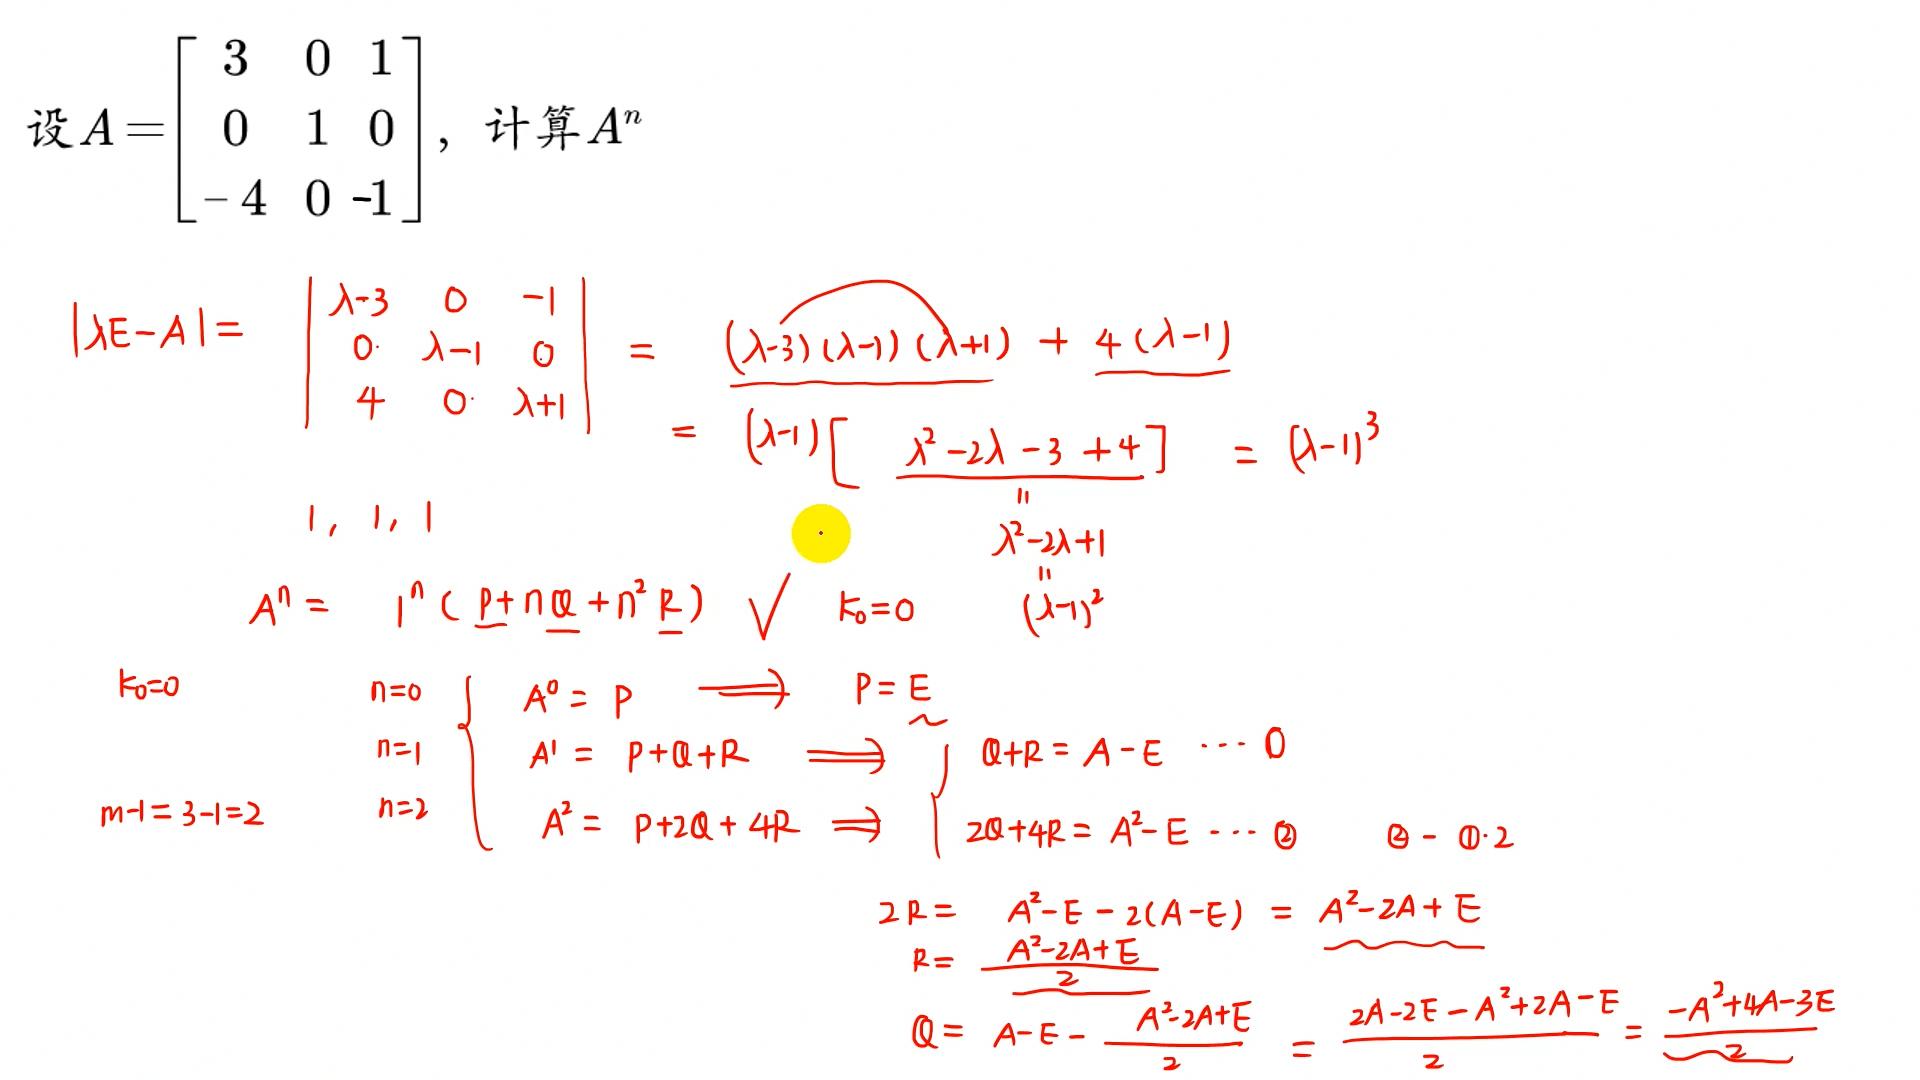 设 A = [ 3 0 1
0 1 0
-4 0 -1 ] , 计算 Aⁿ
|λE-A| = | λ-3 0 -1
0 λ-1 0
4 0 λ+1 | = (λ-3)(λ-1)(λ+1) + 4(λ-1)
= (λ-1)[ λ²-2λ-3+4 ] = (λ-1)³
"
1, 1, 1
λ²-2λ+1
"
Aⁿ = 1ⁿ ( P+nQ+n²R ) √ K₀=0 (λ-1)²
K₀=0 n=0 { A⁰ = P ⟹ P=E
n=1 A¹ = P+Q+R ⟹ { Q+R = A-E ··· ①
m-1=3-1=2 n=2 A² = P+2Q+4R ⟹ 2Q+4R = A²-E ··· ② ②-①·2
2R = A²-E-2(A-E) = A²-2A+E
R = (A²-2A+E)/2
Q = A-E-(A²-2A+E)/2 = (2A-2E-A²+2A-E)/2 = (-A²+4A-3E)/2